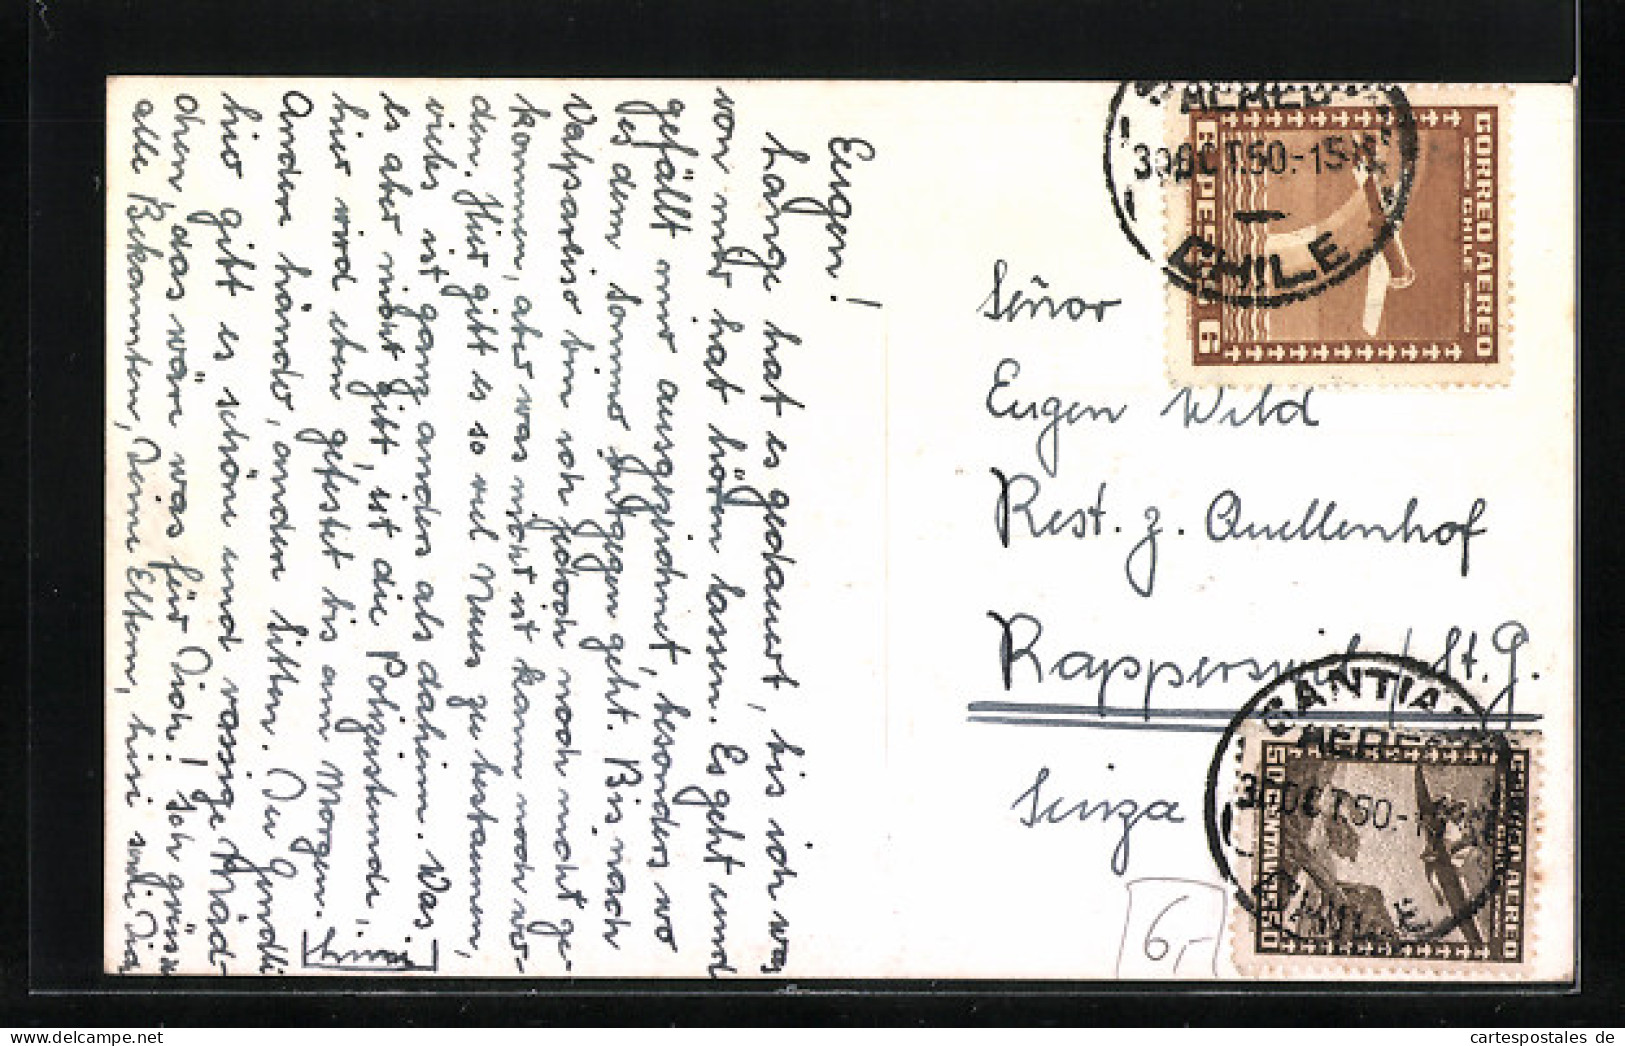 Eugen!
Lange hat es gedauert, bis ich was
von mir hat hören lassen. Es geht und
gefällt mir ausgezeichnet, besonders wo
es dem Sommer entgegen geht. Bis nach
Valparaiso bin ich jedoch noch nicht ge-
kommen, aber was nicht ist kann noch wer-
den. Hier gibt es so viel Neues zu bestaunen,
vieles ist ganz anders als daheim. Was
es aber nicht gibt, ist die Polizeistunde,
hier wird eben gefestet bis am Morgen.
Andere Länder, andere Sitten. Du Gendli
hier gibt es schöne und rassige Mäd-
chen, das wäre was für Dich! Ich grüsse
alle Bekannten, Deine Eltern, hisi und Dich
Señor
Eugen Wild
Rest. z. Quellenhof
Rapperswil / St. G.
Suiza
6,-
CORREO AEREO
CHILE
6 PESOS 6
AEREO
30 OCT. 50.-15
CHILE
SANTIAGO
AEREO
OCT. 50.-1
CHILE
CORREO AEREO
CHILE
50 CENTAVOS 50
cartespostales.de